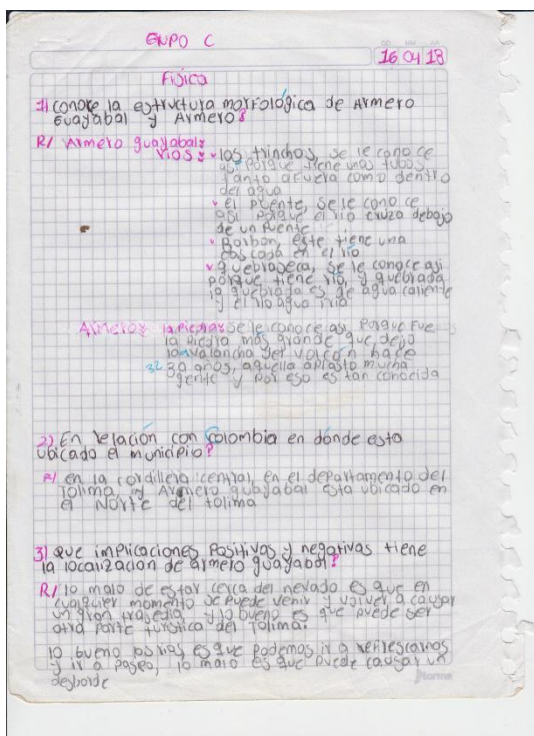 GRUPO C
16 04 18
Fisica
1) conoce la estructura morfologica de Armero
Guayabal y Armero?
R/ Armero guayabal:
RIOS: los trinchos, se le conoce
asi porque tiene unos tubos
tanto afuera como dentro
del agua
el puente, se le conoce
asi porque el rio cruza debajo
de un puente
Borbon, este tiene una
cascada en el rio
quebraseca, se le conoce asi
porque tiene rio, y quebrada
la quebrada es de agua caliente
y el rio agua fria
Armero: la piedra: se le conoce asi, porque fue
la piedra más grande que dejo
la avalancha del volcón hace
32 30 años, aquella aplasto mucha
gente y por eso es tan conocida
2) En relación con Colombia en dónde esta
ubicado el municipio?
R/ en la cordillera central, en el departamento del
Tolima y Armero guayabal esta ubicado en
el Norte del tolima
3) que implicaciones Positivos y negativas tiene
la localizacion de armero guayabal?
R/ lo malo de estar cerca del nevado es que en
cualquier momento se puede venir y volver a causar
un gran tragedia y lo bueno es que puede ser
otra parte turistica del Tolima.
lo bueno los rios es que podemos ir a refrescarnos
y ir a paseo, lo malo es que puede causar un
desborde
norma